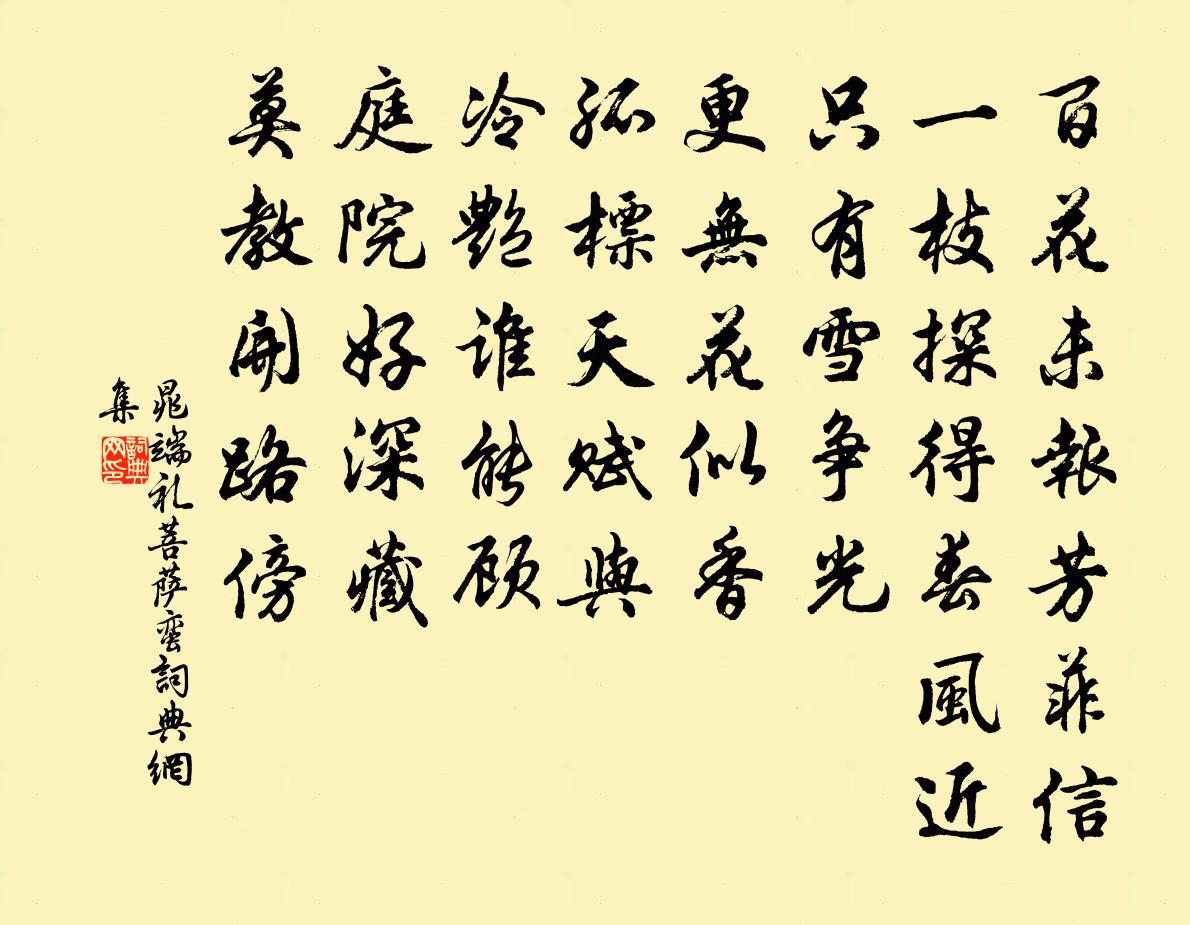 百花未報芳菲信
一枝探得春風近
只有雪爭光
更無花似香
孤標天賦與
冷艷誰能顧
庭院好深藏
莫教開路傍
晁端礼菩萨蛮詞典網
集
詞典網印